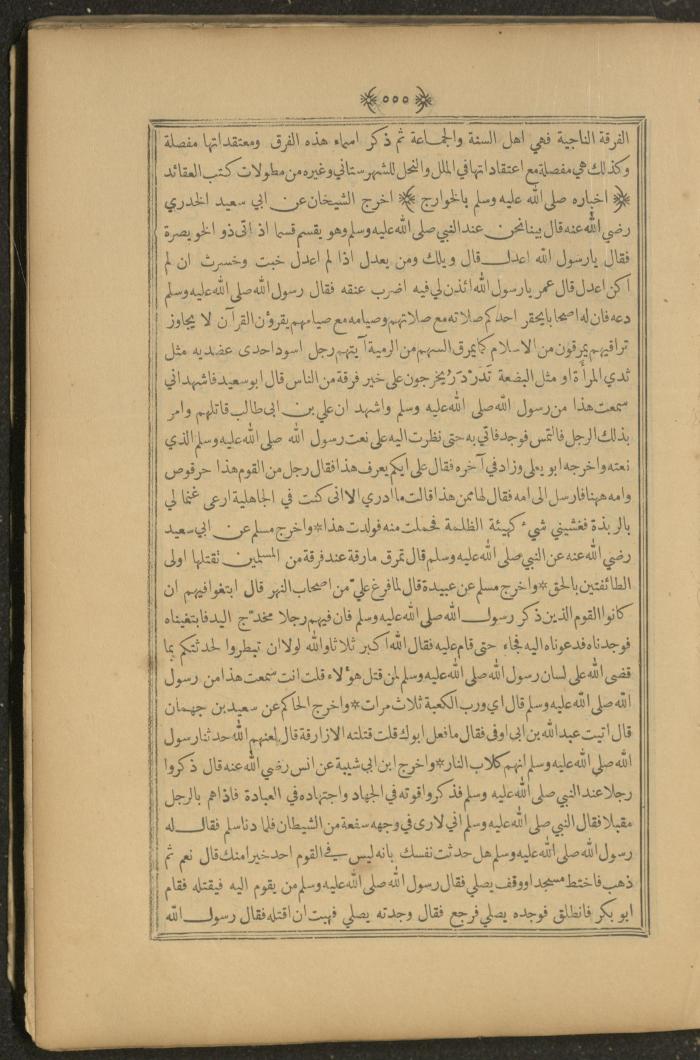 ﴿ ٥٥٥ ﴾
الفرقة الناجية فهي اهل السنة والجماعة ثم ذكر اسماء هذه الفرق ومعتقداتها مفصلة
وكذلك هي مفصلة مع اعتقاداتها في الملل والنحل للشهرستاني وغيره من مطولات كتب العقائد
﴿ اخباره صلى الله عليه وسلم بالخوارج ﴾ اخرج الشيخان عن ابي سعيد الخدري
رضي الله عنه قال بينا نحن عند النبي صلى الله عليه وسلم وهو يقسم قسما اذ اتى ذو الخويصرة
فقال يا رسول الله اعدل قال ويلك ومن يعدل اذا لم اعدل خبت وخسرت ان لم
اكن اعدل قال عمر يا رسول الله ائذن لي فيه اضرب عنقه فقال رسول الله صلى الله عليه وسلم
دعه فان له اصحابا يحقر احدكم صلاته مع صلاتهم وصيامه مع صيامهم يقرؤن القرآن لا يجاوز
تراقيهم يمرقون من الاسلام كما يمرق السهم من الرمية آيتهم رجل اسود احدى عضديه مثل
ثدي المرأة او مثل البضعة تَدَرْدَرُ يخرجون على خير فرقة من الناس قال ابو سعيد فاشهد اني
سمعت هذا من رسول الله صلى الله عليه وسلم واشهد ان علي بن ابي طالب قاتلهم وامر
بذلك الرجل فالتمس فوجد فاتي به حتى نظرت اليه على نعت رسول الله صلى الله عليه وسلم الذي
نعته واخرجه ابو يعلى وزاد في آخره فقال علي ايكم يعرف هذا فقال رجل من القوم هذا حرقوص
وامه ههنا فارسل الى امه فقال لها ممن هذا قالت ما ادري الا اني كنت في الجاهلية ارعى غنما لي
بالربذة فغشيني شيء كهيئة الظلمة فحملت منه فولدت هذا * واخرج مسلم عن ابي سعيد
رضي الله عنه عن النبي صلى الله عليه وسلم قال تمرق مارقة عند فرقة من المسلمين تقتلها اولى
الطائفتين بالحق * واخرج مسلم عن عبيدة قال لما فرغ علي من اصحاب النهر قال ابتغوا فيهم ان
كانوا القوم الذين ذكر رسول الله صلى الله عليه وسلم فان فيهم رجلا مخدج اليد فابتغيناه
فوجدناه فدعوناه اليه فجاء حتى قام عليه فقال الله اكبر ثلاثا والله لولا ان تبطروا لحدثتكم بما
قضى الله على لسان رسول الله صلى الله عليه وسلم لمن قتل هؤلاء قلت انت سمعت هذا من رسول
الله صلى الله عليه وسلم قال اي ورب الكعبة ثلاث مرات * واخرج الحاكم عن سعيد بن جهمان
قال اتيت عبد الله بن ابي اوفى فقال ما فعل ابوك قلت قتلته الازارقة قال لعنهم الله حدثنا رسول
الله صلى الله عليه وسلم انهم كلاب النار * واخرج ابن ابي شيبة عن انس رضي الله عنه قال ذكروا
رجلا عند النبي صلى الله عليه وسلم فذكروا قوته في الجهاد واجتهاده في العبادة فاذا هم بالرجل
مقبلا فقال النبي صلى الله عليه وسلم اني لارى في وجهه سفعة من الشيطان فلما دنا سلم فقال له
رسول الله صلى الله عليه وسلم هل حدثت نفسك بانه ليس في القوم احد خيرا منك قال نعم ثم
ذهب فاختط مسجدا ووقف يصلي فقال رسول الله صلى الله عليه وسلم من يقوم اليه فيقتله فقام
ابو بكر فانطلق فوجده يصلي فرجع فقال وجدته يصلي فهبت ان اقتله فقال رسول الله